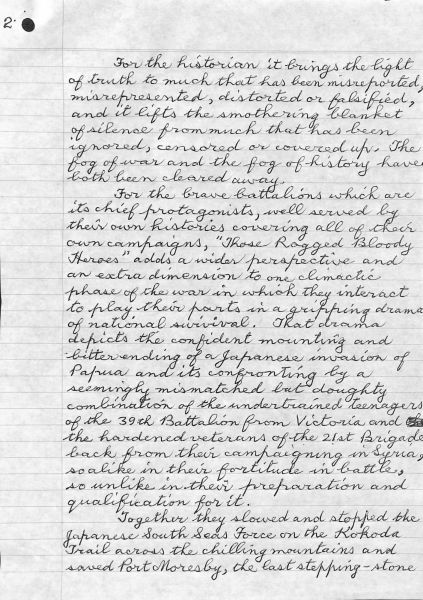 2.
For the historian it brings the light
of truth to much that has been misreported,
misrepresented, distorted or falsified,
and it lifts the smothering blanket
of silence from much that has been
ignored, censored or covered up. The
fog of war and the fog of history have
both been cleared away.
For the brave battalions which are
its chief protagonists, well served by
their own histories covering all of their
own campaigns, "Those Ragged Bloody
Heroes" adds a wider perspective and
an extra dimension to one climactic
phase of the war in which they interact
to play their parts in a gripping drama
of national survival. That drama
depicts the confident mounting and
bitter ending of a Japanese invasion of
Papua and its confronting by a
seemingly mismatched but doughty
combination of the undertrained teenagers
of the 39th Battalion from Victoria and
the hardened veterans of the 21st Brigade
back from their campaigning in Syria,
so alike in their fortitude in battle,
so unlike in their preparation and
qualification for it.
Together they slowed and stopped the
Japanese South Seas Force on the Kokoda
Trail across the chilling mountains and
saved Port Moresby, the last stepping-stone